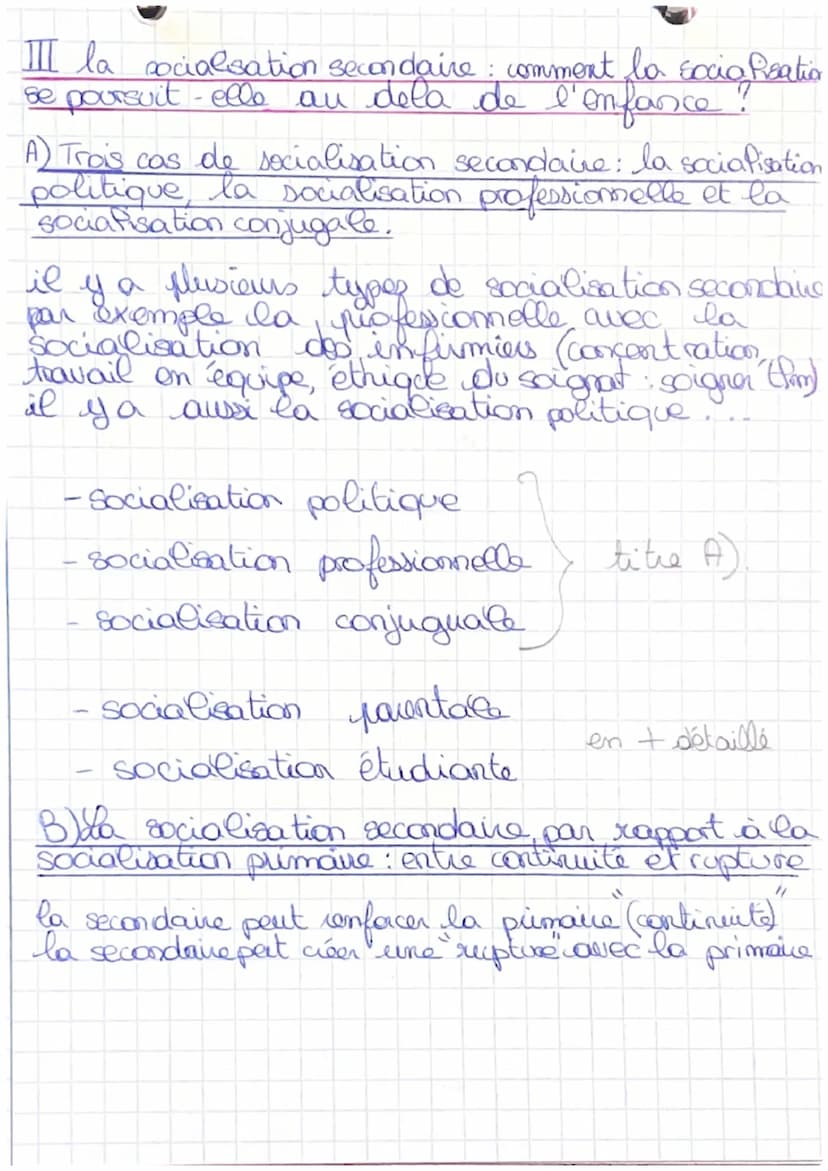 III la socialisation secondaire : comment la socialisation
se poursuit-elle au dela de l'enfance ?
A) Trois cas de socialisation secondaire : la socialisation
politique, la socialisation professionnelle et la
socialisation conjugale.
il y a plusieurs types de socialisation secondaire
par exemple la professionnelle avec la
socialisation des infirmiers (concentration,
travail en équipe, éthique du soignat : soigner
il y a aussi la socialisation politique ....
- socialisation politique
- socialisation professionnelle
titre A)
- socialisation conjuguale
- socialisation parentale
en + détaillé
- socialisation étudiante
B) La socialisation secondaire, par rapport à la
socialisation primaire : entre continuité et rupture
la secondaire peut renforcer la primaire "(continuité)"
la secondaire peut créer une "rupture" avec la primaire